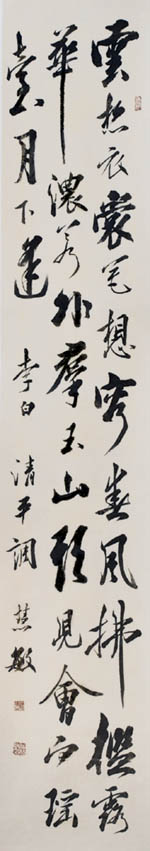 雲想衣裳花想容春風拂檻露
華濃若非羣玉山頭見會向瑤
臺月下逢 李白 清平調 慧敏